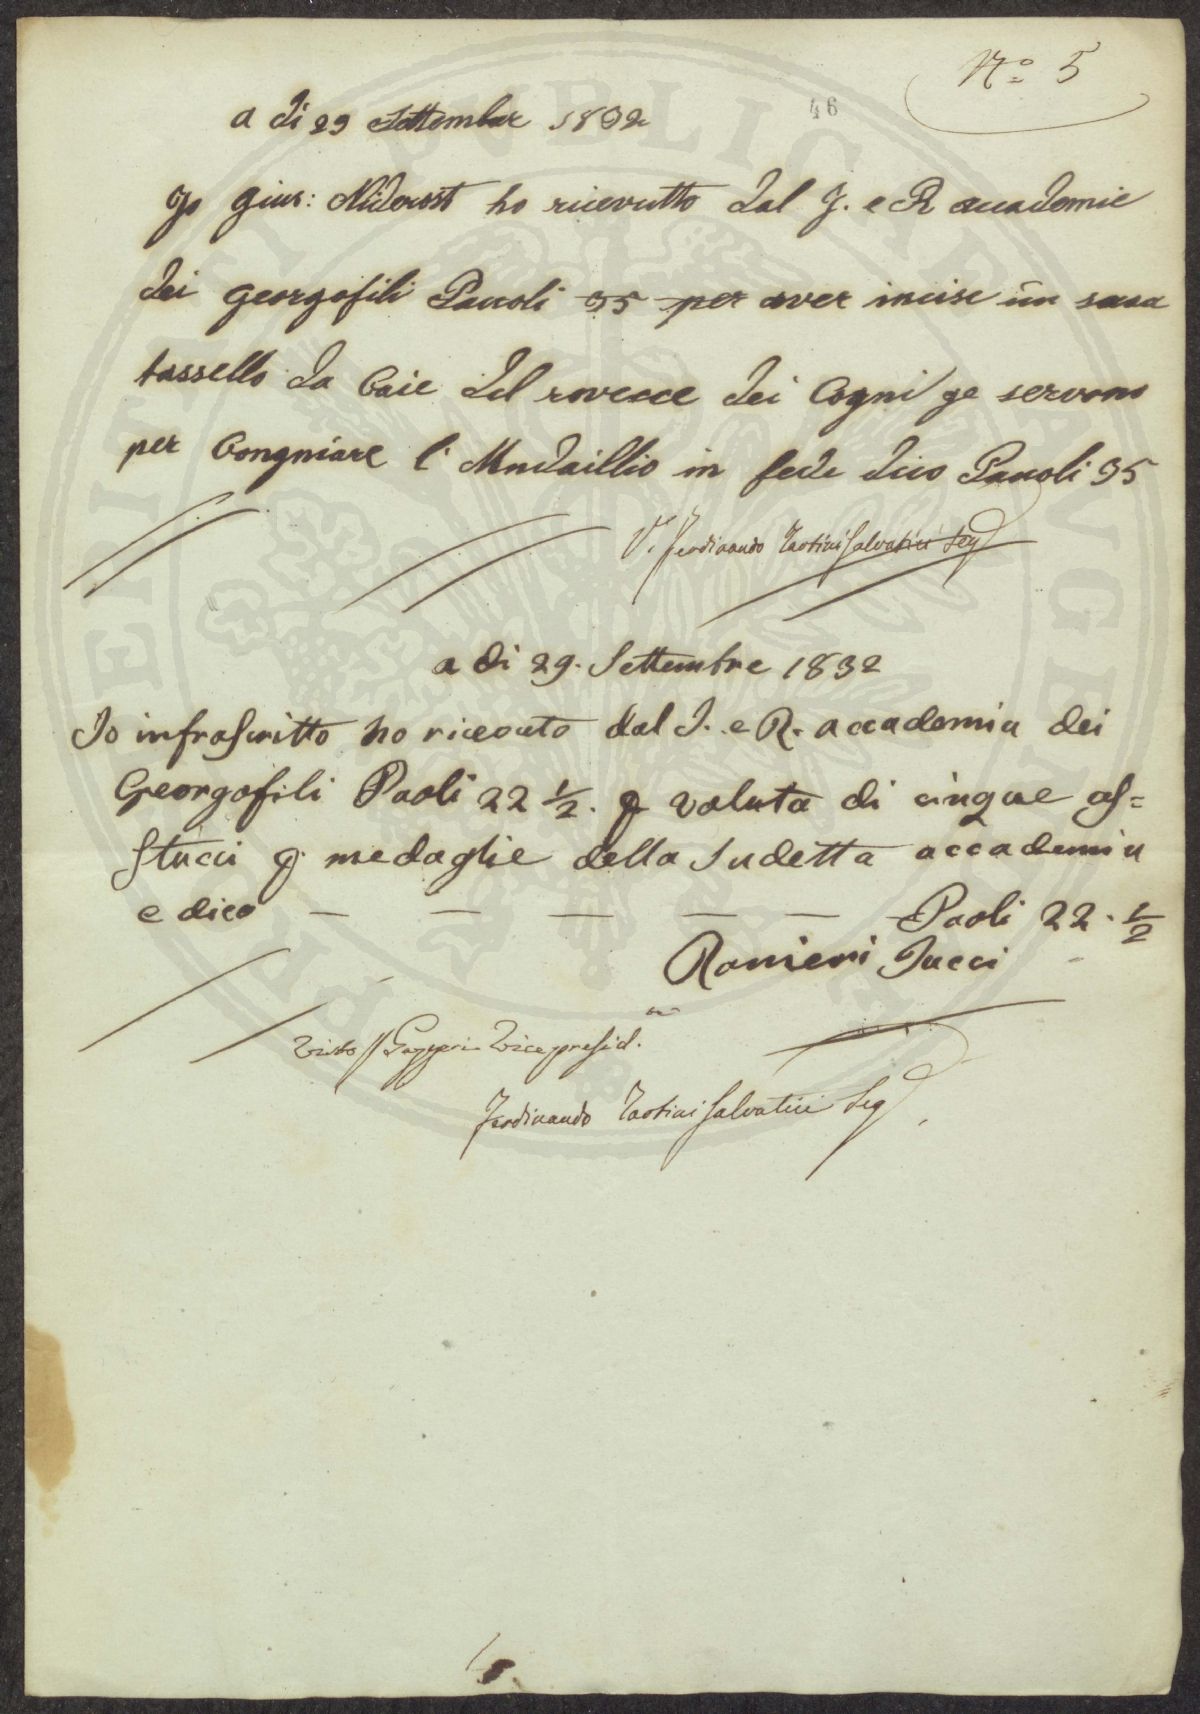 Nº 5
46
a di 29 Settembre 1832
Jo gius: Niderost ho ricevutto dal J. e R accademie
dei georgofili Pauoli 35 per aver incise un
tassello da Caie del rovecce dei Cogni ge servono
per Congniare l' Mudaillio in fede dico Pauoli 35
V. Ferdinando Tartini Salvatici Seg
a di 29. Settembre 1832
Io infrascritto ho riceouto dal I. e R. accademia dei
Georgofili Paoli 22 ½. p valuta di cinque as=
stucci p. medaglie della sudetta accademia
e dico — — — — — Paoli 22. ½
Ranieri Tucci
Visto Vicepresid.
Ferdinando Tartini Salvatici Seg